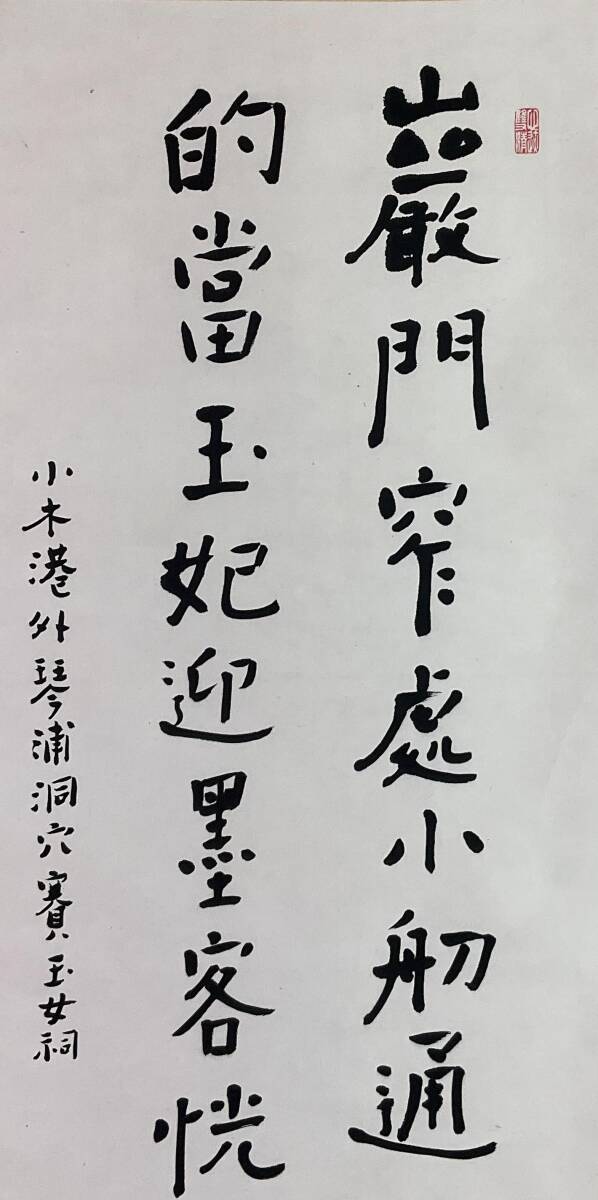 巖門窄處小舠通
的當玉妃迎墨客恍
小木港外琴浦洞穴賽玉女祠